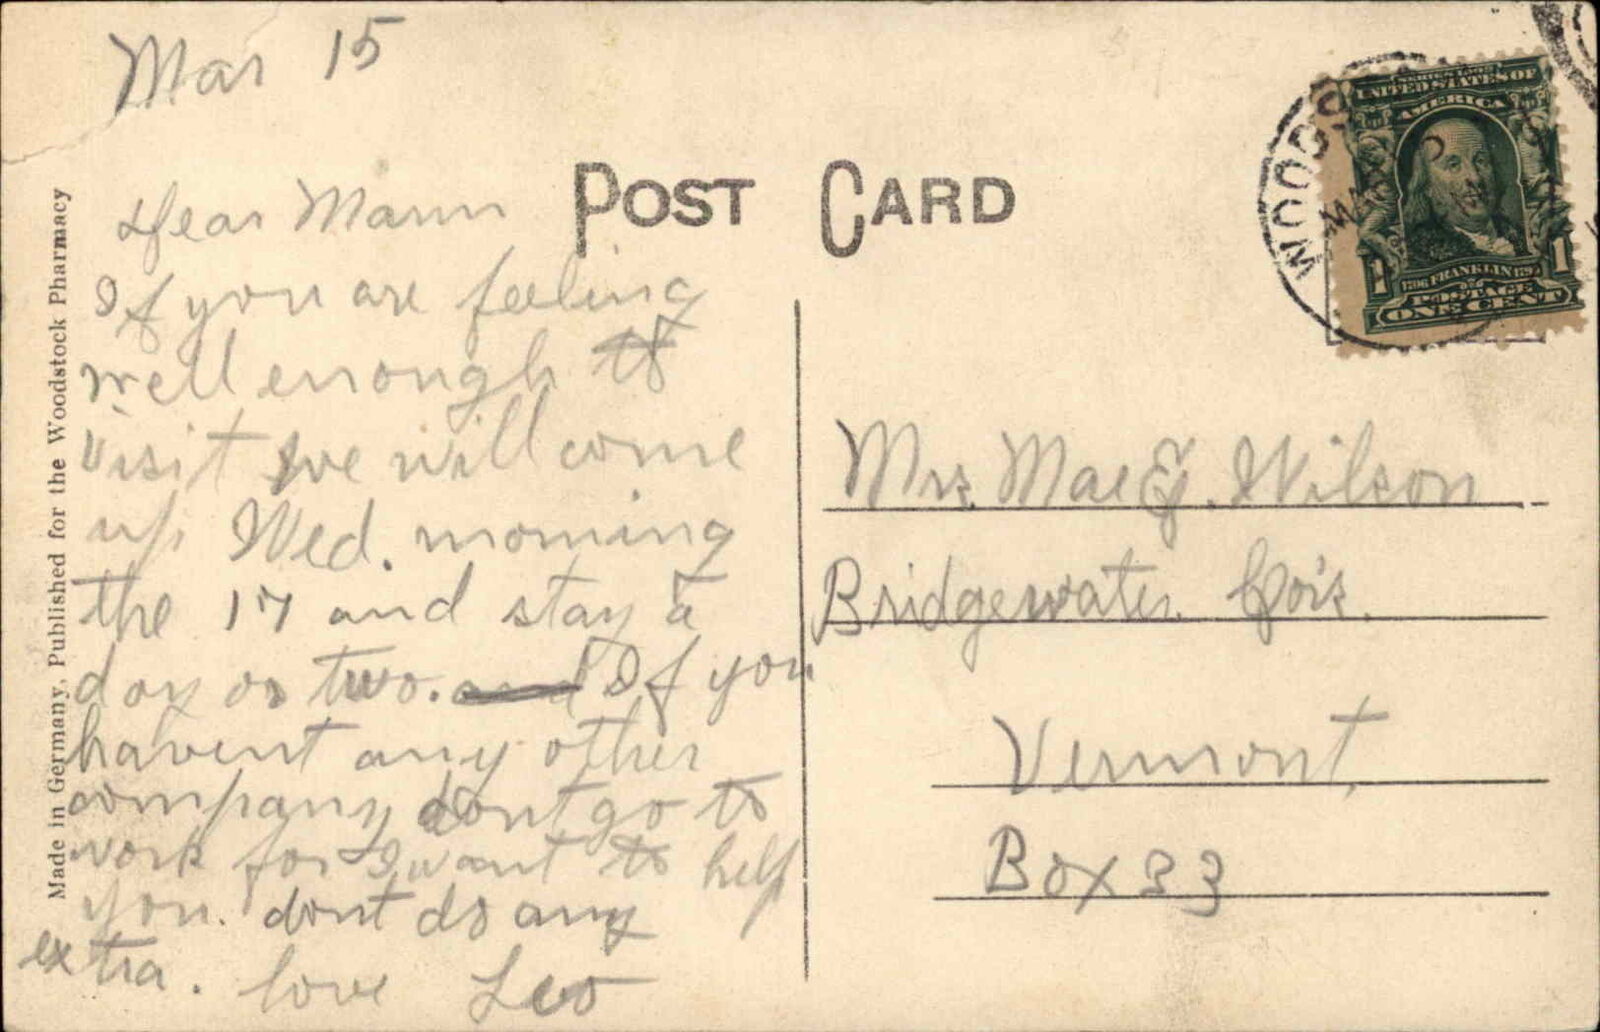 Mar 15
Dear Mam
If you are feeling
well enough to
visit we will come
up Wed. morning
the 17 and stay a
day or two. and If you
havent any other
company dont go to
work for I want to help
you. dont do any
extra. love Leo
Made in Germany, Published for the Woodstock Pharmacy
POST CARD
WOODS
MAR
SERIES 1902
UNITED STATES OF
AMERICA
1706 FRANKLIN 1790
POSTAGE
1 1
ONE CENT
Mrs. Mae E. Wilson
Bridgewater Cors.
Vermont,
Box 33